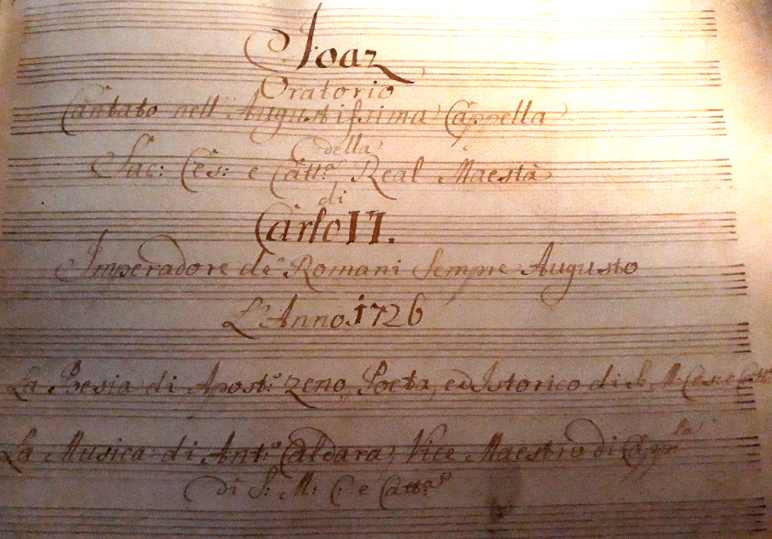 Joaz
Oratorio
Cantato nell' Augustissima Cappella
della
Sac: Ces: e Catt.ca Real Maestà
di
Carlo VI.
Imperadore de' Romani Sempre Augusto
L'Anno 1726
La Poesia di Apost:o Zeno, Poeta, ed Istorico di S: M: Ces: e Catt:
La Musica di Ant:o Caldara, Vice Maestro di Capp:lla
di S: M: C: e Catt:ca